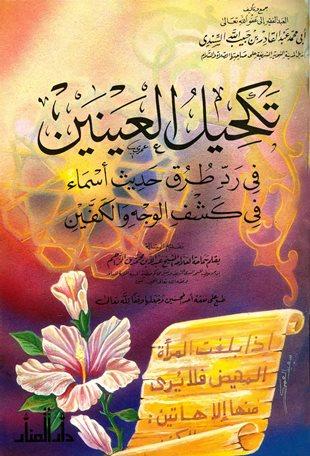 جمع وتأليف
العبد الفقير إلى عفو الله تعالى
أبي محمد عبد القادر بن حبيب الله السندي
تكحيل العينين
في رد طرق حديث أسماء
في كشف الوجه والكفين
طبع على نفقة أحد المحسنين وجعلها وقفا لله تعالى
إذا بلغت المرأة
المحيض فلا يرى
منها إلا هاتين:
دار المنار